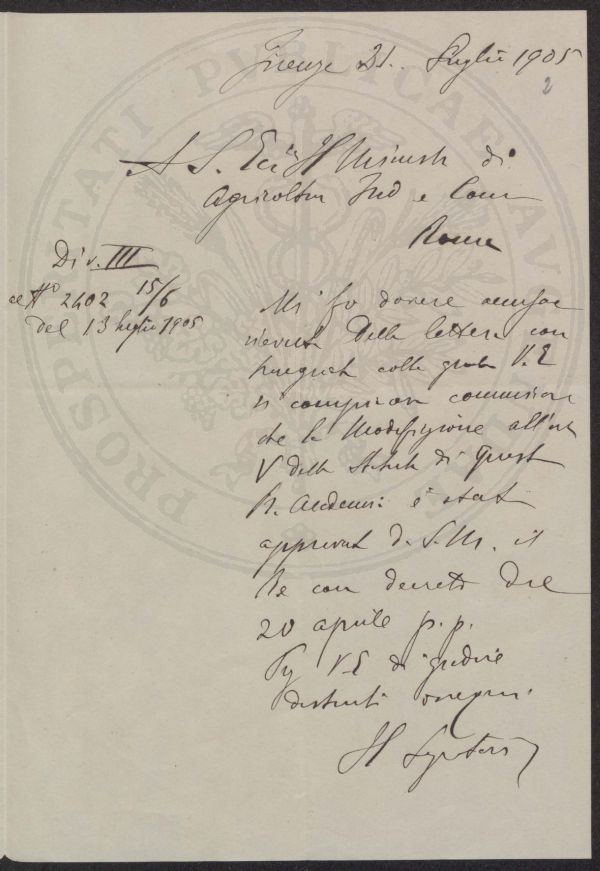 Firenze 21. Luglio 1905
2
A S. Ecc. Il Ministro di
Agricoltura Ind e Com
Roma
Div. III
al N° 2402 15/6
del 13 luglio 1905
Mi fo dovere accusare
ricevuta della lettera con
la quale V. E
si compiaceva comunicare
che la Modificazione all'art
V dello Statuto di questa
R. Accademia è stata
approvata da S. M. il
Re con decreto del
20 aprile p. p.
V. E di gradire
distinti ossequi.
Il
PROSPERITATI PUBLICAE AUGENDAE